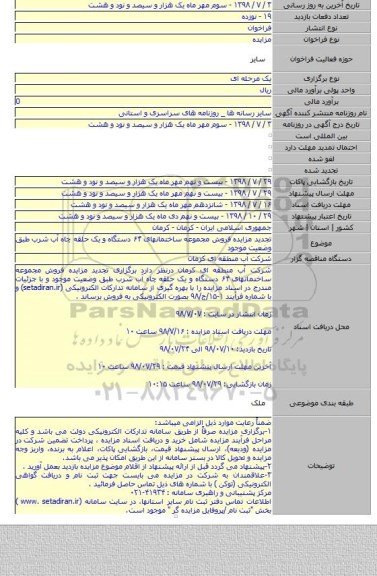 تاریخ آخرین به روز رسانی
۳ / ۷ / ۱۳۹۸ - سوم مهر ماه یک هزار و سیصد و نود و هشت
تعداد دفعات بازدید
۱۹ - نوزده
نوع انتشار
فراخوان
نوع فراخوان
مزایده
حوزه فعالیت فراخوان
سایر
نوع برگزاری
یک مرحله ای
واحد پولی برآورد مالی
ریال
برآورد مالی
0
نام روزنامه منتشر کننده آگهی
سایر رسانه ها _ روزنامه های سراسری و استانی
تاریخ درج آگهی در روزنامه
۳ / ۷ / ۱۳۹۸ - سوم مهر ماه یک هزار و سیصد و نود و هشت
بین المللی است
احتمال تمدید مهلت دارد
لغو شده
تجدید شده
تاریخ بازگشایی پاکات
۲۹ / ۷ / ۱۳۹۸ - بیست و نهم مهر ماه یک هزار و سیصد و نود و هشت
مهلت ارسال پیشنهاد
۲۹ / ۷ / ۱۳۹۸ - بیست و نهم مهر ماه یک هزار و سیصد و نود و هشت
مهلت دریافت اسناد
۱۶ / ۷ / ۱۳۹۸ - شانزدهم مهر ماه یک هزار و سیصد و نود و هشت
تاریخ اعتبار پیشنهاد
۲۹ / ۱۰ / ۱۳۹۸ - بیست و نهم دی ماه یک هزار و سیصد و نود و هشت
کشور | استان | شهر
جمهوری اسلامی ایران - کرمان - کرمان
موضوع
تجدید مزایده فروش مجموعه ساختمانهای ۶۴ دستگاه و یک حلقه چاه آب شرب طبق وضعیت موجود
دستگاه مناقصه گزار
شرکت آب منطقه ای کرمان
محل دریافت اسناد
شرکت آب منطقه ای کرمان درنظر دارد برگزاری تجدید مزایده فروش مجموعه
ساختمانهای ۶۴ دستگاه و یک حلقه چاه آب شرب طبق وضعیت موجود و با جزئیات
مندرج در اسناد مزایده را با بهره گیری از سامانه تدارکات الکترونیکی (setadiran.ir) و
با شماره فرآیند ۱-۱۵/ج/۹۸ بصورت الکترونیکی به فروش برساند .
زمان انتشار در سایت : ۹۸/۷/۰۷
مهلت دریافت اسناد مزایده : ۹۸/۷/۱۶ ساعت ۱۰
تاریخ بازدید: ۹۸/۰۷/۱۰ الی ۹۸/۰۷/۲۴
آخرین مهلت ارسال پیشنهاد قیمت : ۹۸/۰۷/۲۹ ساعت ۱۰
زمان بازگشایی: ۹۸/۰۷/۲۹ ساعت ۱۰:۱۵
ParsNamadData
۰۲۱-۸۸۳۴۹۶۷۰-۵
طبقه بندی موضوعی
ملک
توضیحات
ضمناً رعایت موارد ذیل الزامی میباشد:
۱-برگزاری مزایده صرفاً از طریق سامانه تدارکات الکترونیکی دولت می باشد و کلیه
مراحل فرآیند مزایده شامل خرید و دریافت اسناد مزایده ، پرداخت تضمین شرکت در
مزایده (ودیعه)، ارسال پیشنهاد قیمت، بازگشایی پاکات، اعلام به برنده، واریز وجه
مزایده و تحویل کالا در بستر سامانه از این طریق امکان پذیر می باشد.
۲-پیشنهاد می گردد قبل از ارائه پیشنهاد از اقلام موضوع مزایده بازدید بعمل آورید .
۳-علاقمندان به شرکت در مزایده می بایست جهت ثبت نام و دریافت گواهی
الکترونیکی (توکن ) با شماره های ذیل تماس حاصل فرمائید .
مرکز پشتیبانی و راهبری سامانه : ۴۱۹۳۴-۰۲۱
اطلاعات تماس دفتر ثبت نام سایر استانها، در سایت سامانه (www. setadiran.ir )
بخش "ثبت نام /پروفایل مزایده گر " موجود است.